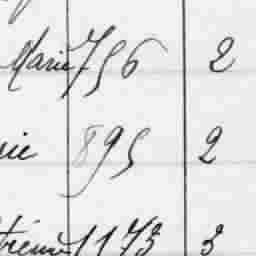 Marie 756 2
rie 895 2
1173 3